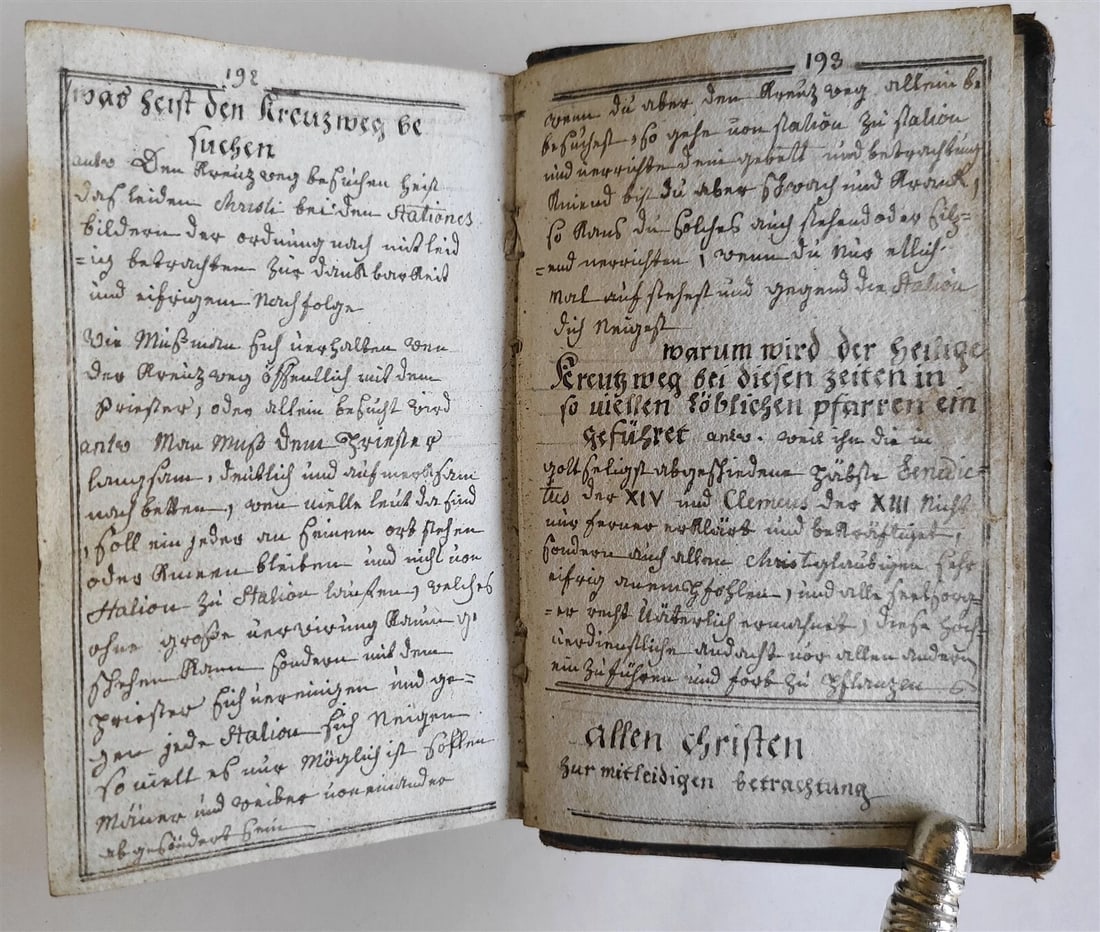 192
was heist den Kreuzweg be
suchen
antw Den Kreutzweg besuchen heist
das leiden Christi bei den Stationes
bildern der ordnung nach mitleid
=ig betrachten zur dankbarkeit
und eifrigem Nachfolge
Wie Muß man sich uerhalten wen
der Kreutzweg öffentlich mit dem
Priester, oder allein besucht wird
antw Man Muß dem Priester
langsam, deutlich und aufmerksam
nachbetten, wen uielle leut da sind
, soll ein jeder an seinem ort stehen
oder Knieen bleiben und nicht uon
Station zu Station lauffen, welches
ohne große uerwirung kaum ge
schehen kann sondern mit dem
priester sich uereinigen und ge=
gen jede Station sich Neigen
so uielt es nur Möglich ist sollen
Mäner und weiber uoneinander
abgesöndert sein
193
wenn du aber den Kreutzweg allein be
besuchest, so gehe uon station zu station
und uerrichte dein gebett und betrachtung
Kniend bist du aber schwach und Krank,
so Kans du solches auch stehend oder sitz=
=end uerrichten, wenn du Nur etlich
Mal aufstehest und gegend die Station
dich Neigest
warum wird der heilige
Kreutzweg bei diesen zeiten in
so uiellen löblichen pfarren ein
geführet antw. weil ihn die in
gottseligst abgeschiedene Päbste Benedic=
tus der XIV und Clemens der XIII Nicht
nur ferner erklärt und bekräftiget,
sondern auch allen Christglaubigen sehr
eifrig anempfohlen, und alle seelsorg=
=er recht Uäterlich ermahnet, diese hoch=
uerdienstliche andacht uor allen andern
ein zuführen und fort zu pflanzen
allen christen
zur mitleidigen betrachtung